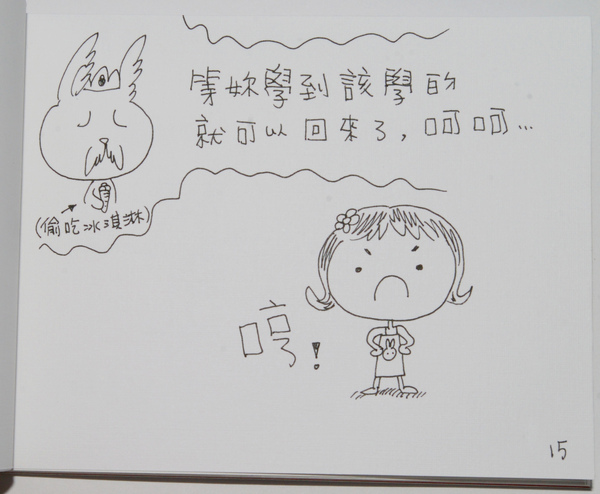 等妳學到該學的
就可以回來了，呵呵…
(偷吃冰淇淋)
哼！
15